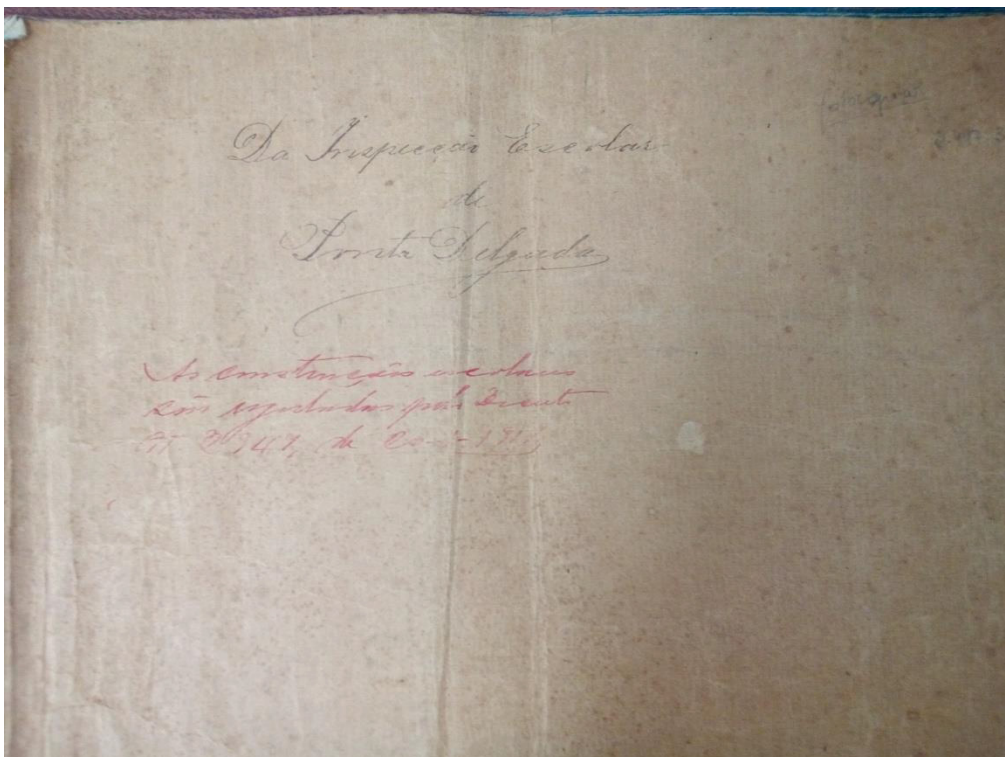 Da Inspecção Escolar
de
Ponta Delgada
As construcções escolares
são reguladas pelo Decreto
nº 2947, de